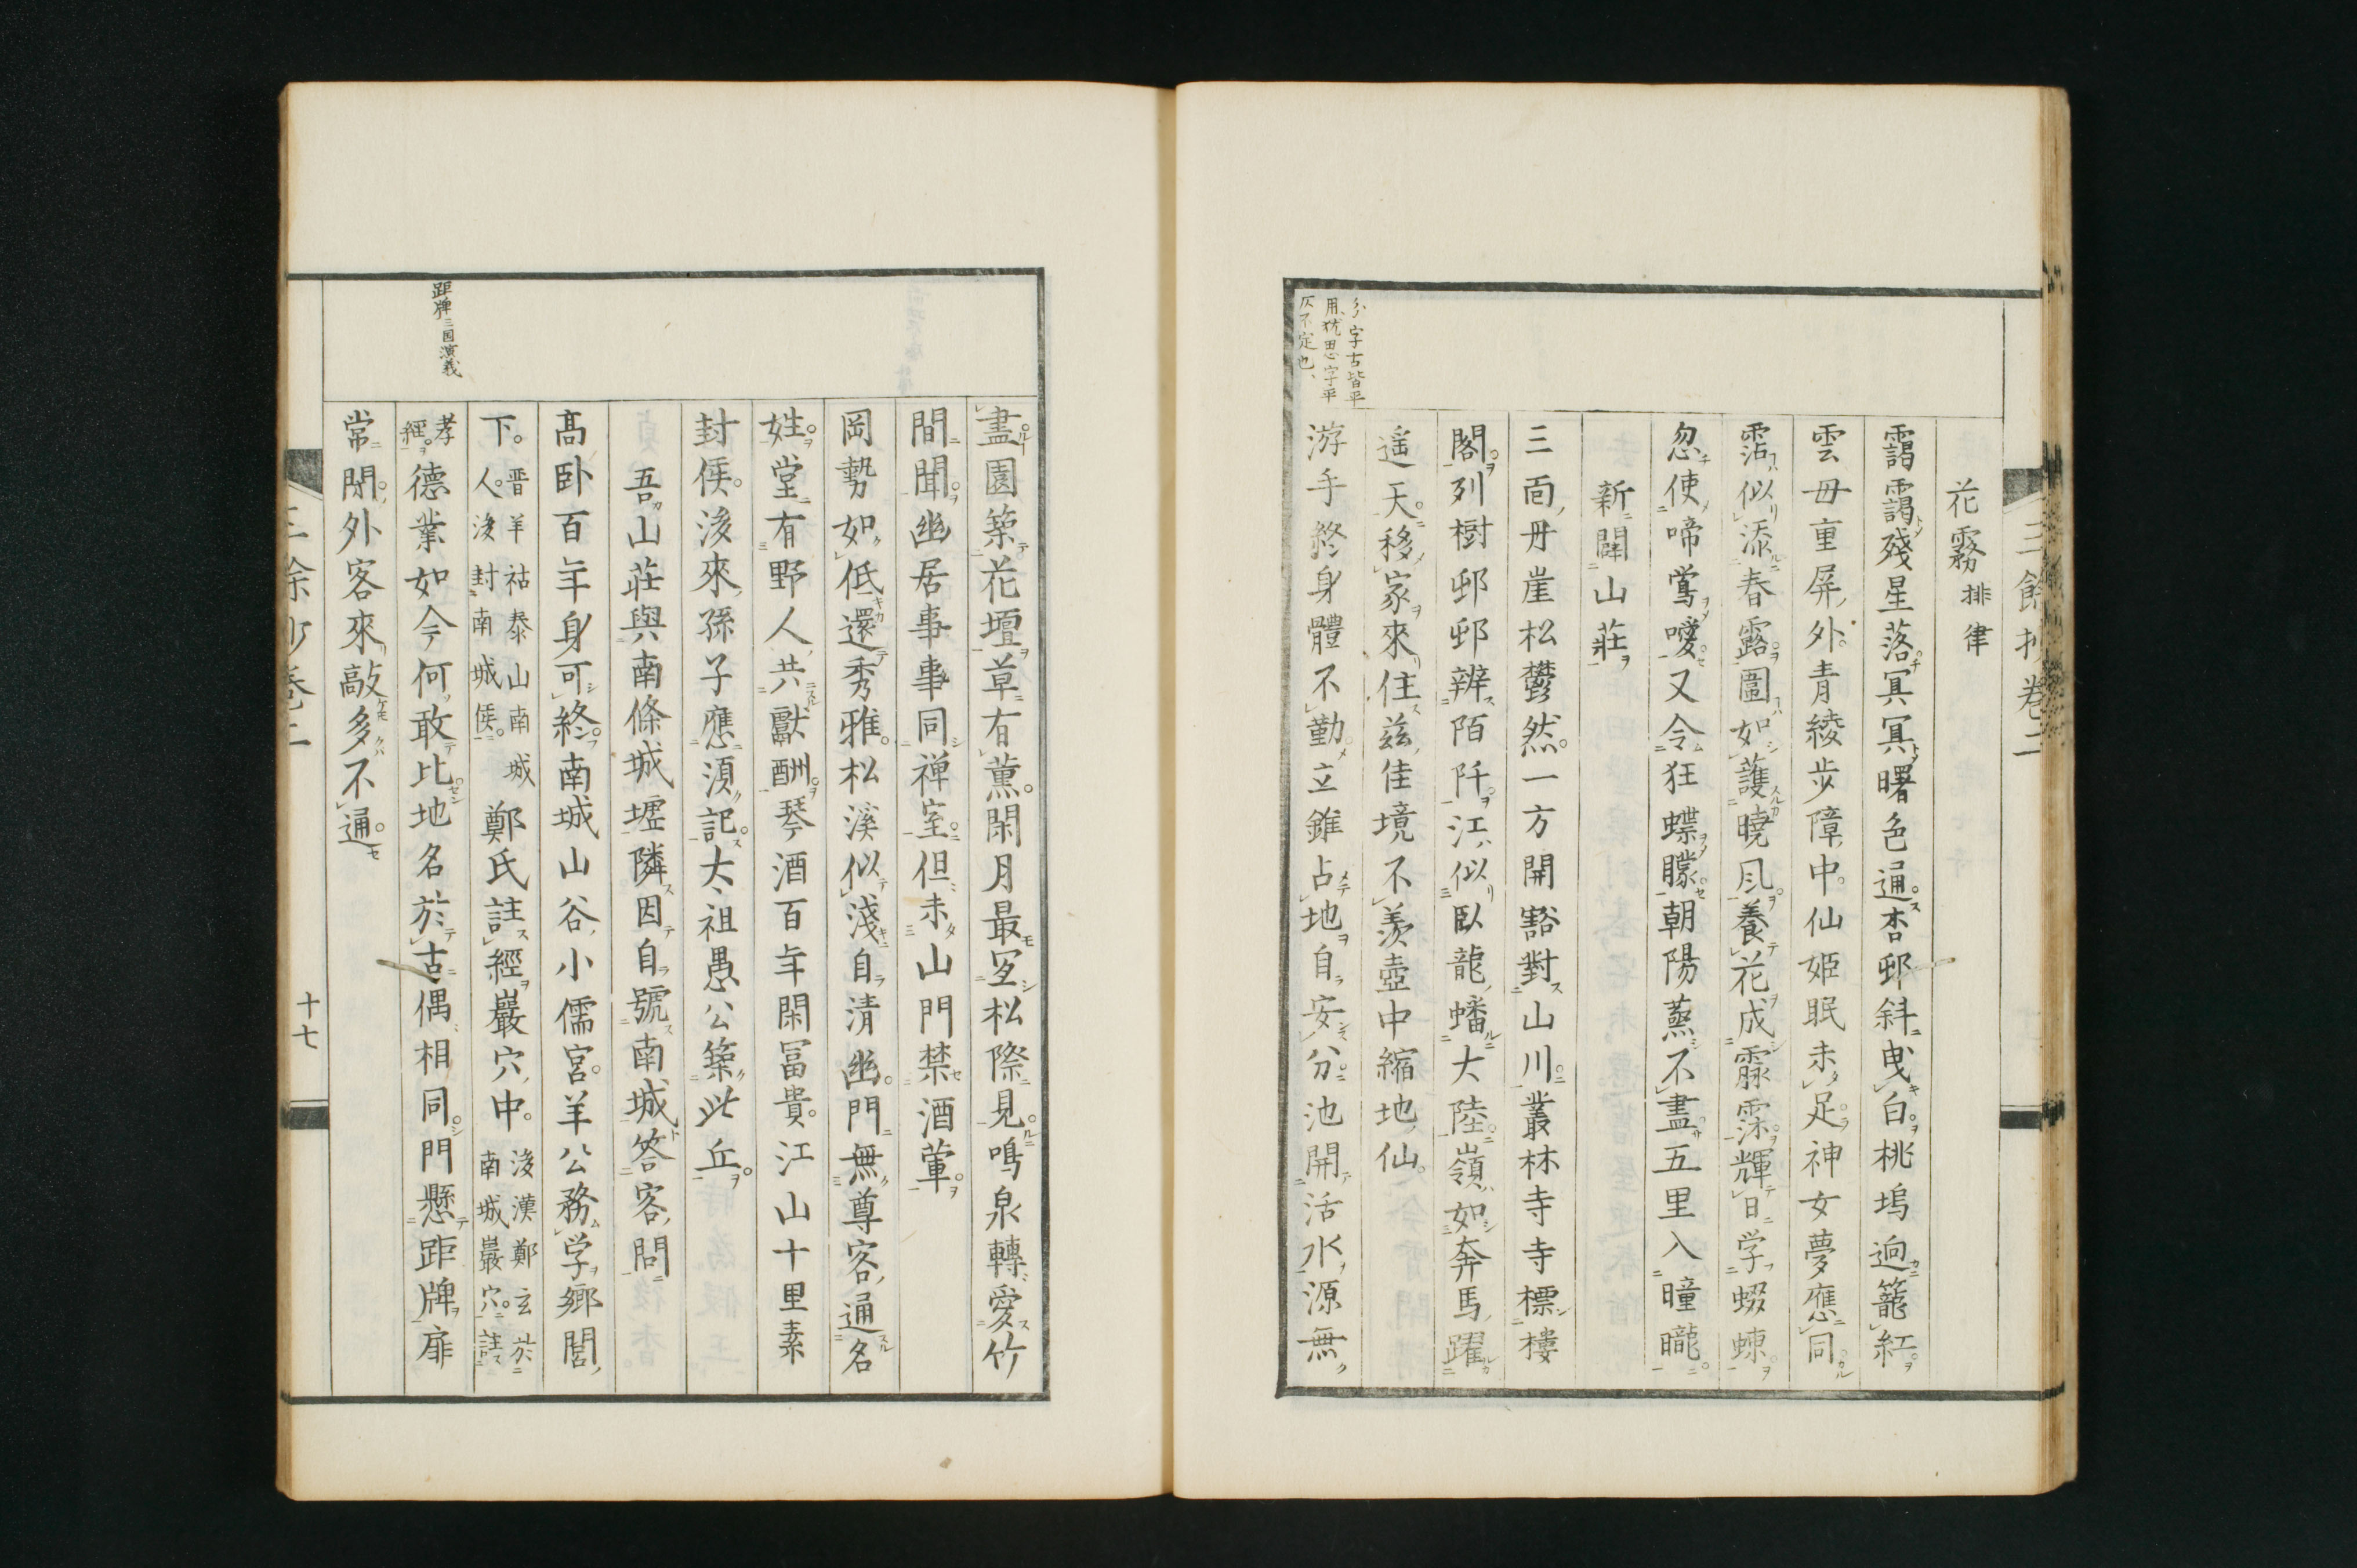 三餘抄卷二
花霧排律
靄靄殘星落冥冥曙色通杏邨斜曳白桃塢逈籠紅
雲毋重屏外青綾步障中仙姫眠未足神女夢應同
霑似添春露圍如護曉風養花成霡霂輝日学蝃蝀
忽使啼鶯噯又令狂蝶朦朝陽蒸不盡五里入瞳曨
新闢山莊
三面丹崖松鬱然一方開豁對山川叢林寺寺標樓
閣列樹邨邨辨陌阡江似臥龍蟠大陸嶺如奔馬躍
遥天移家來住茲佳境不羨壺中縮地仙
分字古皆平
用犹思字平
仄不定也、
游手終身體不勤立錐占地自安分池開活水源無
盡園築花壇草有薫閑月最宜松際見鳴泉轉愛竹
間聞幽居事事同禅室但未山門禁酒葷
岡勢如低還秀雅松溪似淺自清幽門無尊客通名
姓堂有野人共獻酬琴酒百年閑冨貴江山十里素
封侯後來孫子應須記大祖愚公築此丘
吾山莊與南條城墟隣因自號南城答客問
高卧百年身可終南城山谷小儒宮羊公務学鄉閭
下晋羊祜泰山南城人後封南城侯鄭氏註經巖穴中後漢鄭玄於南城巖穴註
孝經德業如今何敢比地名於古偶相同門懸距牌扉
距牌三国演義
常閉外客來敲多不通
三餘抄卷二
十七